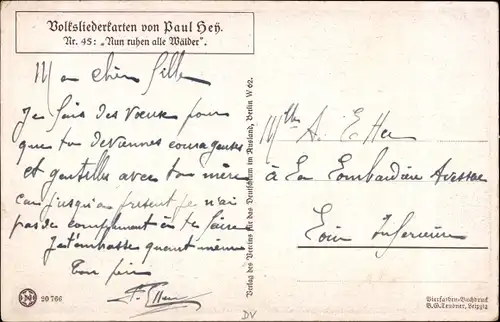 Volksliederkarten von Paul Hey.
Nr. 45: „Nun ruhen alle Wälder".
Mon chère Gille
Je fais des vœux pour
que tu deviennes courageuse
et gentille avec ta mère
car jusqu'au présent je n'ai
pas de compliment à te faire
Je t'embrasse quand même
Ton père
F. Etter
Mlle A. Etter
à La Lombardière
Loire Inférieure
Verlag des Vereins für das Deutschtum im Ausland, Berlin W 62.
20 766
Vierfarben-Buchdruck
B.G. Teubner, Leipzig
DV